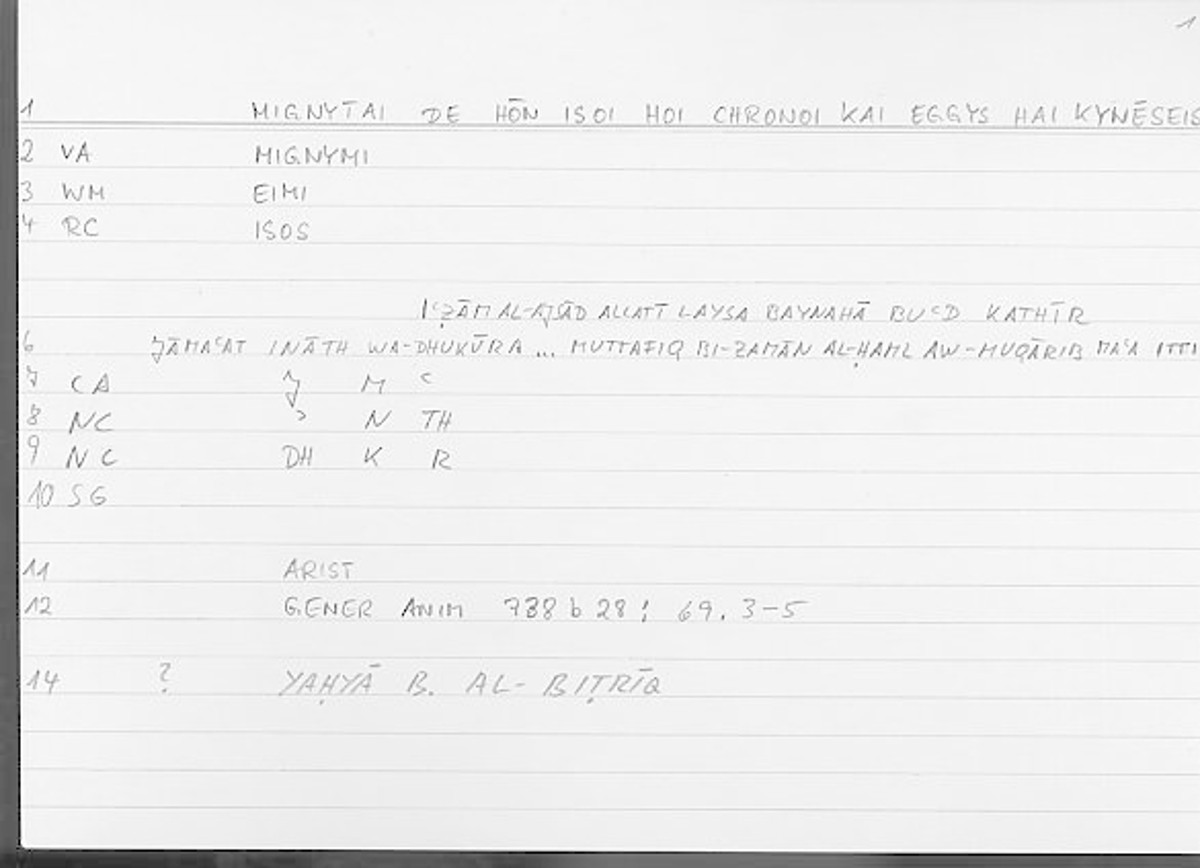 1
1 MIGNYTAI DE HŌN ISOI HOI CHRONOI KAI EGGYS HAI KYNĒSEIS
2 VA MIGNYMI
3 WM EIMI
4 RC ISOS
IʿẒĀM AL-AJSĀD ALLATĪ LAYSA BAYNAHĀ BUʿD KATHĪR
6 JĀMAʿAT INĀTH WA-DHUKŪRA ... MUTTAFIQ BI-ZAMĀN AL-ḤAML AW-MUQĀRIB MAʿA ITTI
7 CA J M ʿ
8 NC ʾ N TH
9 NC DH K R
10 SG
11 ARIST
12 GENER ANIM 738 b 28 ; 69. 3-5
14 ? YAḤYĀ B. AL-BIṬRĪQ